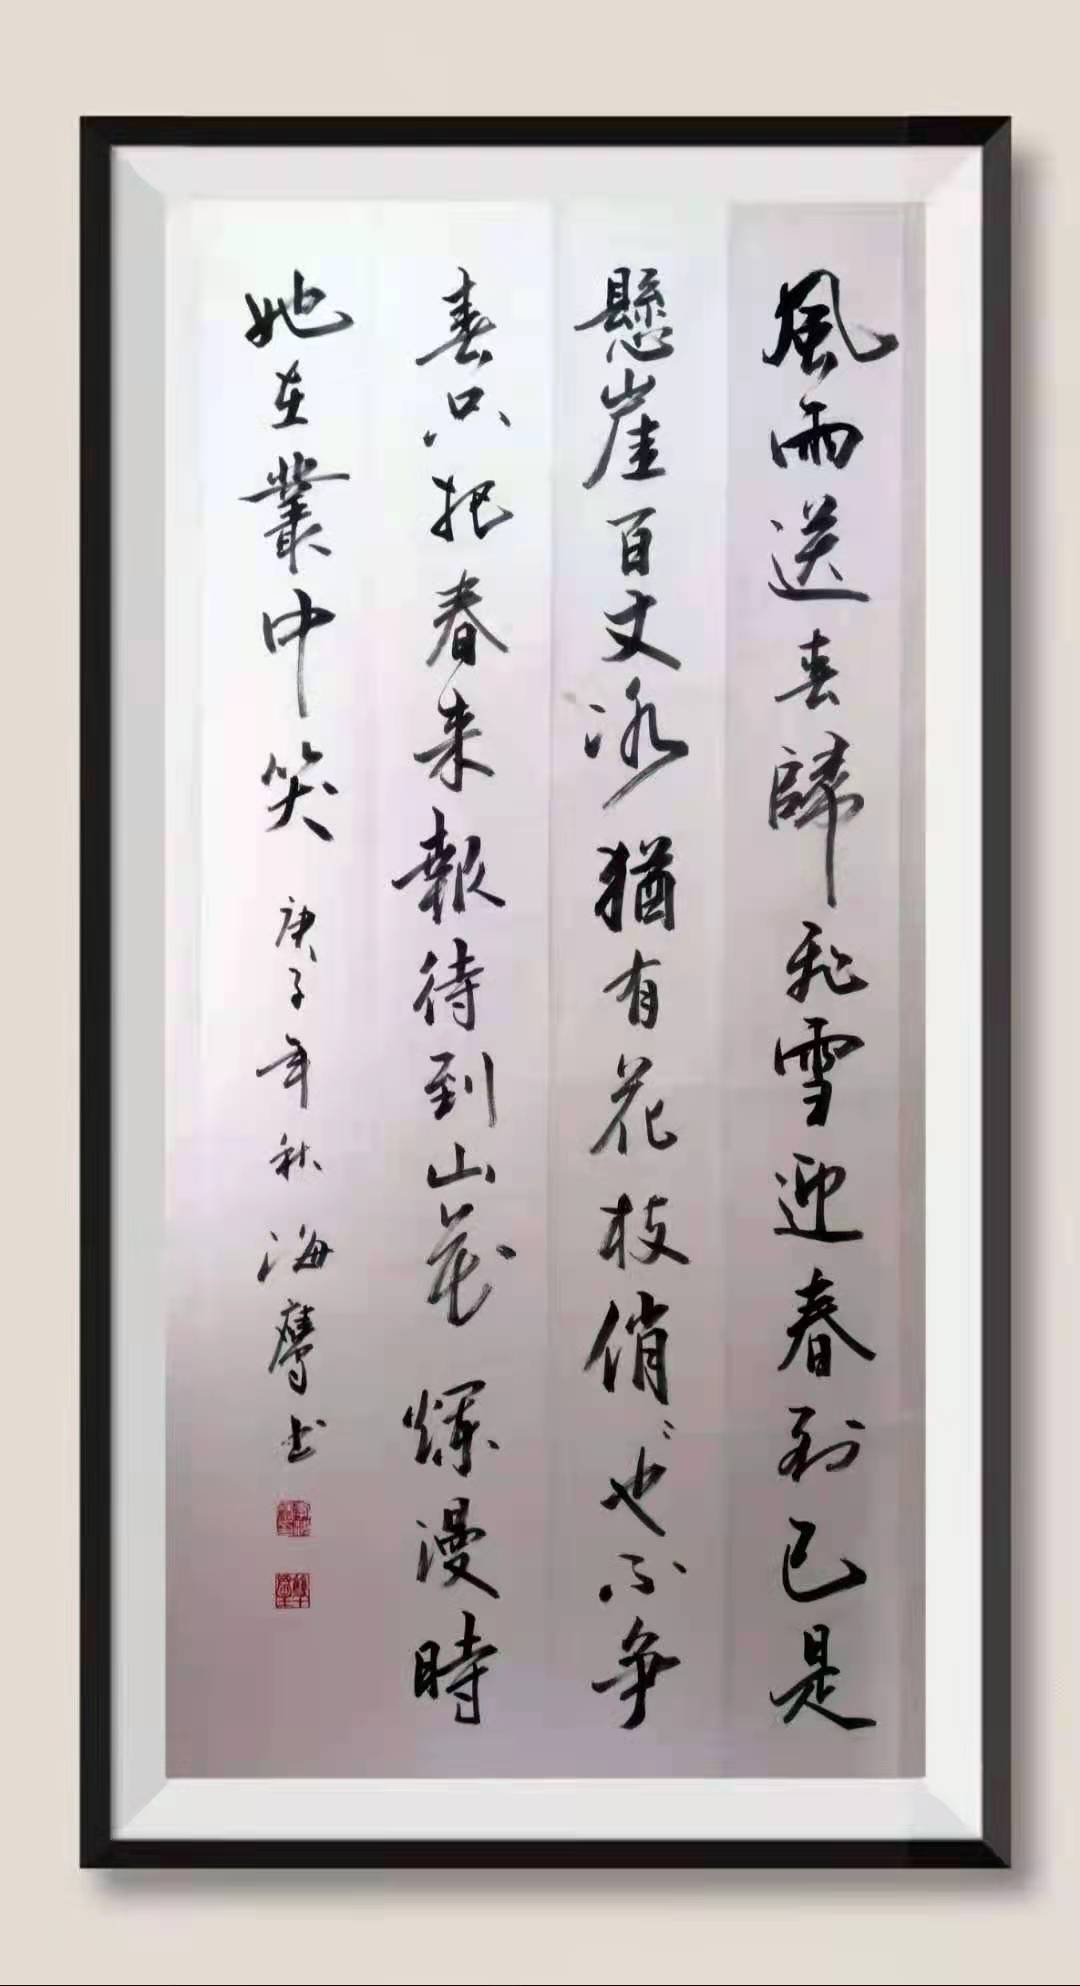 風雨送春歸飛雪迎春到已是
懸崖百丈冰猶有花枝俏〻也不争
春只把春来報待到山花爛漫時
她在叢中笑 庚子年秋 海鹰书